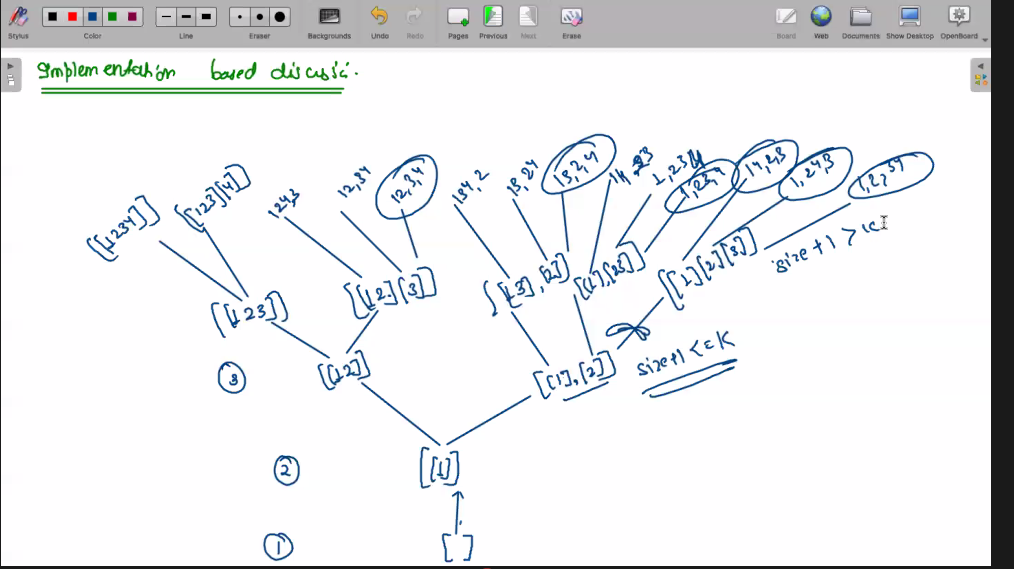 Stylus Color Line Eraser Backgrounds Undo Redo Pages Previous Next Erase Board Web Documents Show Desktop OpenBoard
Implementation based discussi.
[[1234]]
[[123][4]]
124,3
12,34
12,3,4
134,2
13,24
13,2,4
14,23
1,234
1,23,4
14,2,3
1,24,3
1,2,34
[[123]]
[[12][3]]
[[13],[2]]
[[1],[23]]
[[1][2][3]]
size+1 > k
3
[[12]]
[[1],[2]]
size+1 <= K
2
[[1]]
1
[ ]